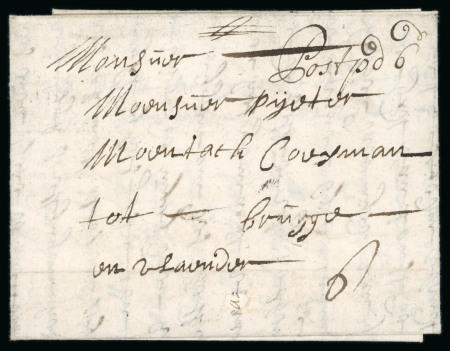 Monsuer Post pd 6d
Moensuer pijeter
Moentack Coeyman
tot brugge
en vlaender
6